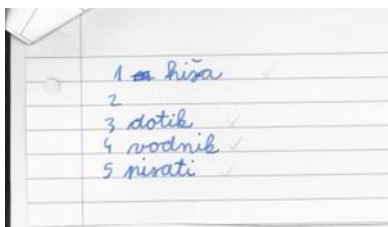 1 hiša
2
3 dotik
4 vodnik
5 pisati